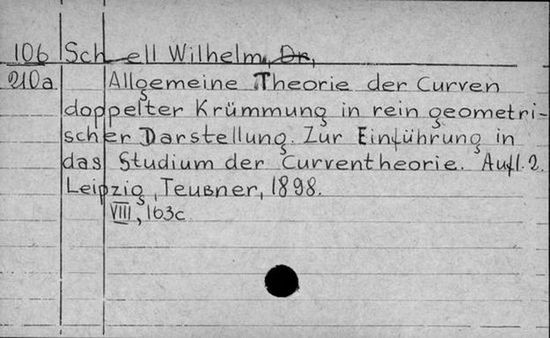 106 Schell Wilhelm, Dr,
210a Allgemeine Theorie der Curven
doppelter Krümmung in rein geometri-
scher Darstellung. Zur Einführung in
das Studium der Curventheorie. Aufl. 2.
Leipzig, Teubner, 1898.
VIII, 163c